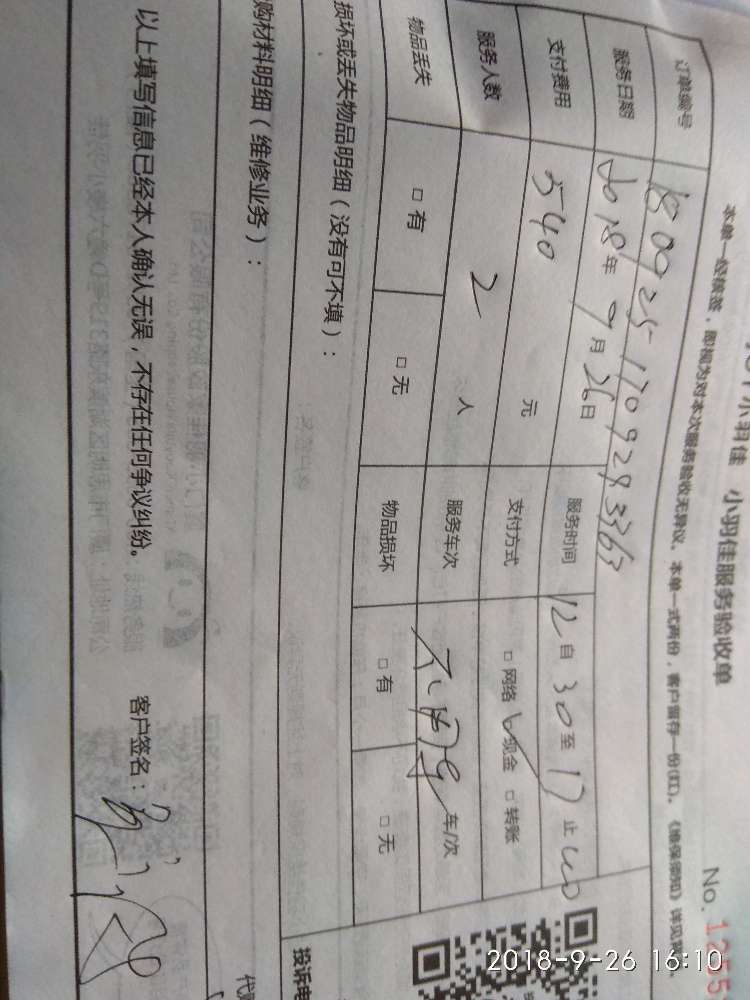 小羽佳 小羽佳服务验收单
No. 1255
本单一经核签，即视为对本次服务验收无异议。本单一式两份，客户留存一份(红)。《维保须知》详见背
订单编号 1809251709293363
服务日期 2018年9月26日 服务时间 12自30至17止00
支付费用 540 元 支付方式 □网络 ☑现金 □转账
服务人数 2 人 服务车次 车/次
物品丢失 □有 □无 物品损坏 □有 □无
损坏或丢失物品明细（没有可不填）：
购材料明细（维修业务）：
投诉电
代购
以上填写信息已经本人确认无误，不存在任何争议纠纷。 客户签名：
2018-9-26 16:10